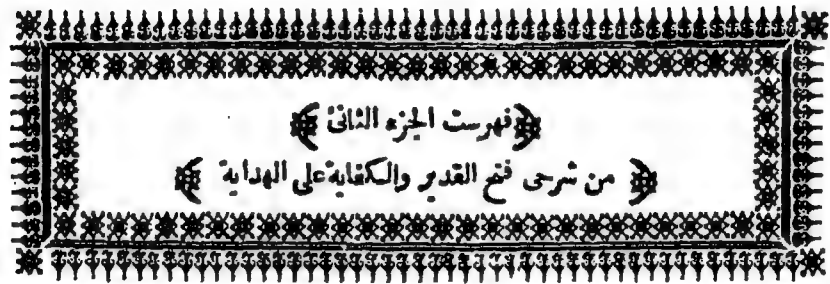 ﴿فهرست الجزء الثانى﴾
﴿ من شرحى فتح القدير والكفاية على الهداية ﴾